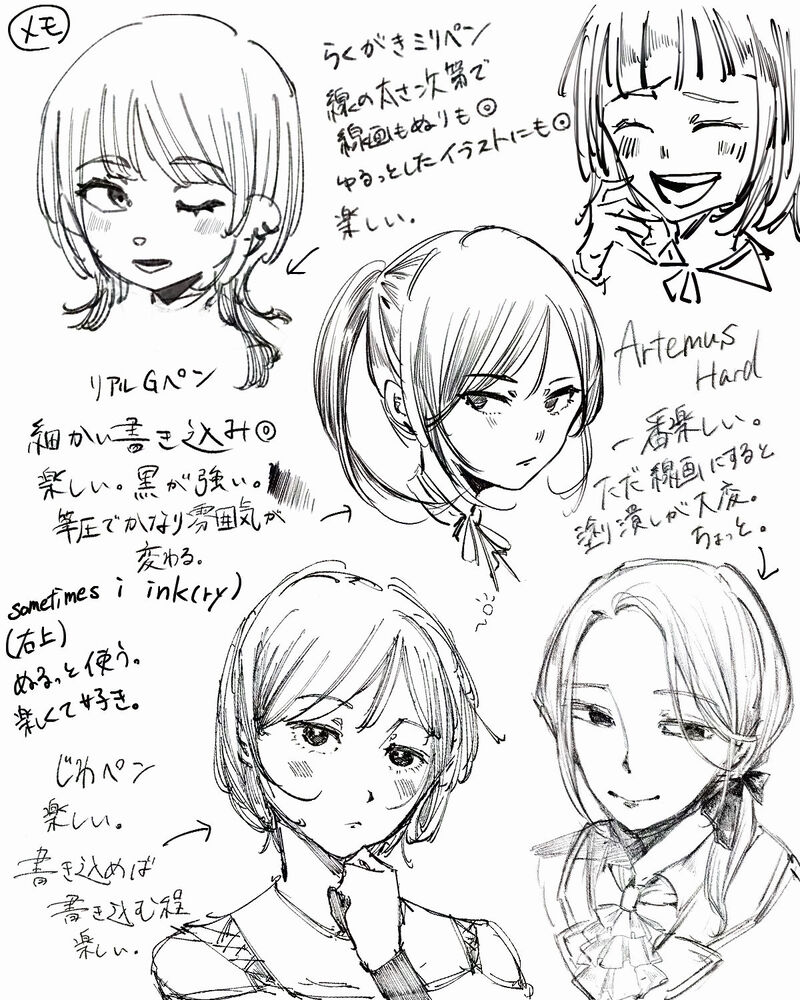 メモ
らくがきミリペン
線の太さ次第で
線画もぬりも◎
ゆるっとしたイラストにも◎
楽しい。
リアルGペン
細かい書き込み◎
楽しい。黒が強い。
筆圧でかなり雰囲気が
変わる。
Artemus
Hard
一番楽しい。
ただ線画にすると
塗り潰しが大変。
ちょっと。
sometimes i ink(ry)
(右上)
ぬるっと使う。
楽しくて好き。
じわペン
楽しい。
書き込めば
書き込む程
楽しい。